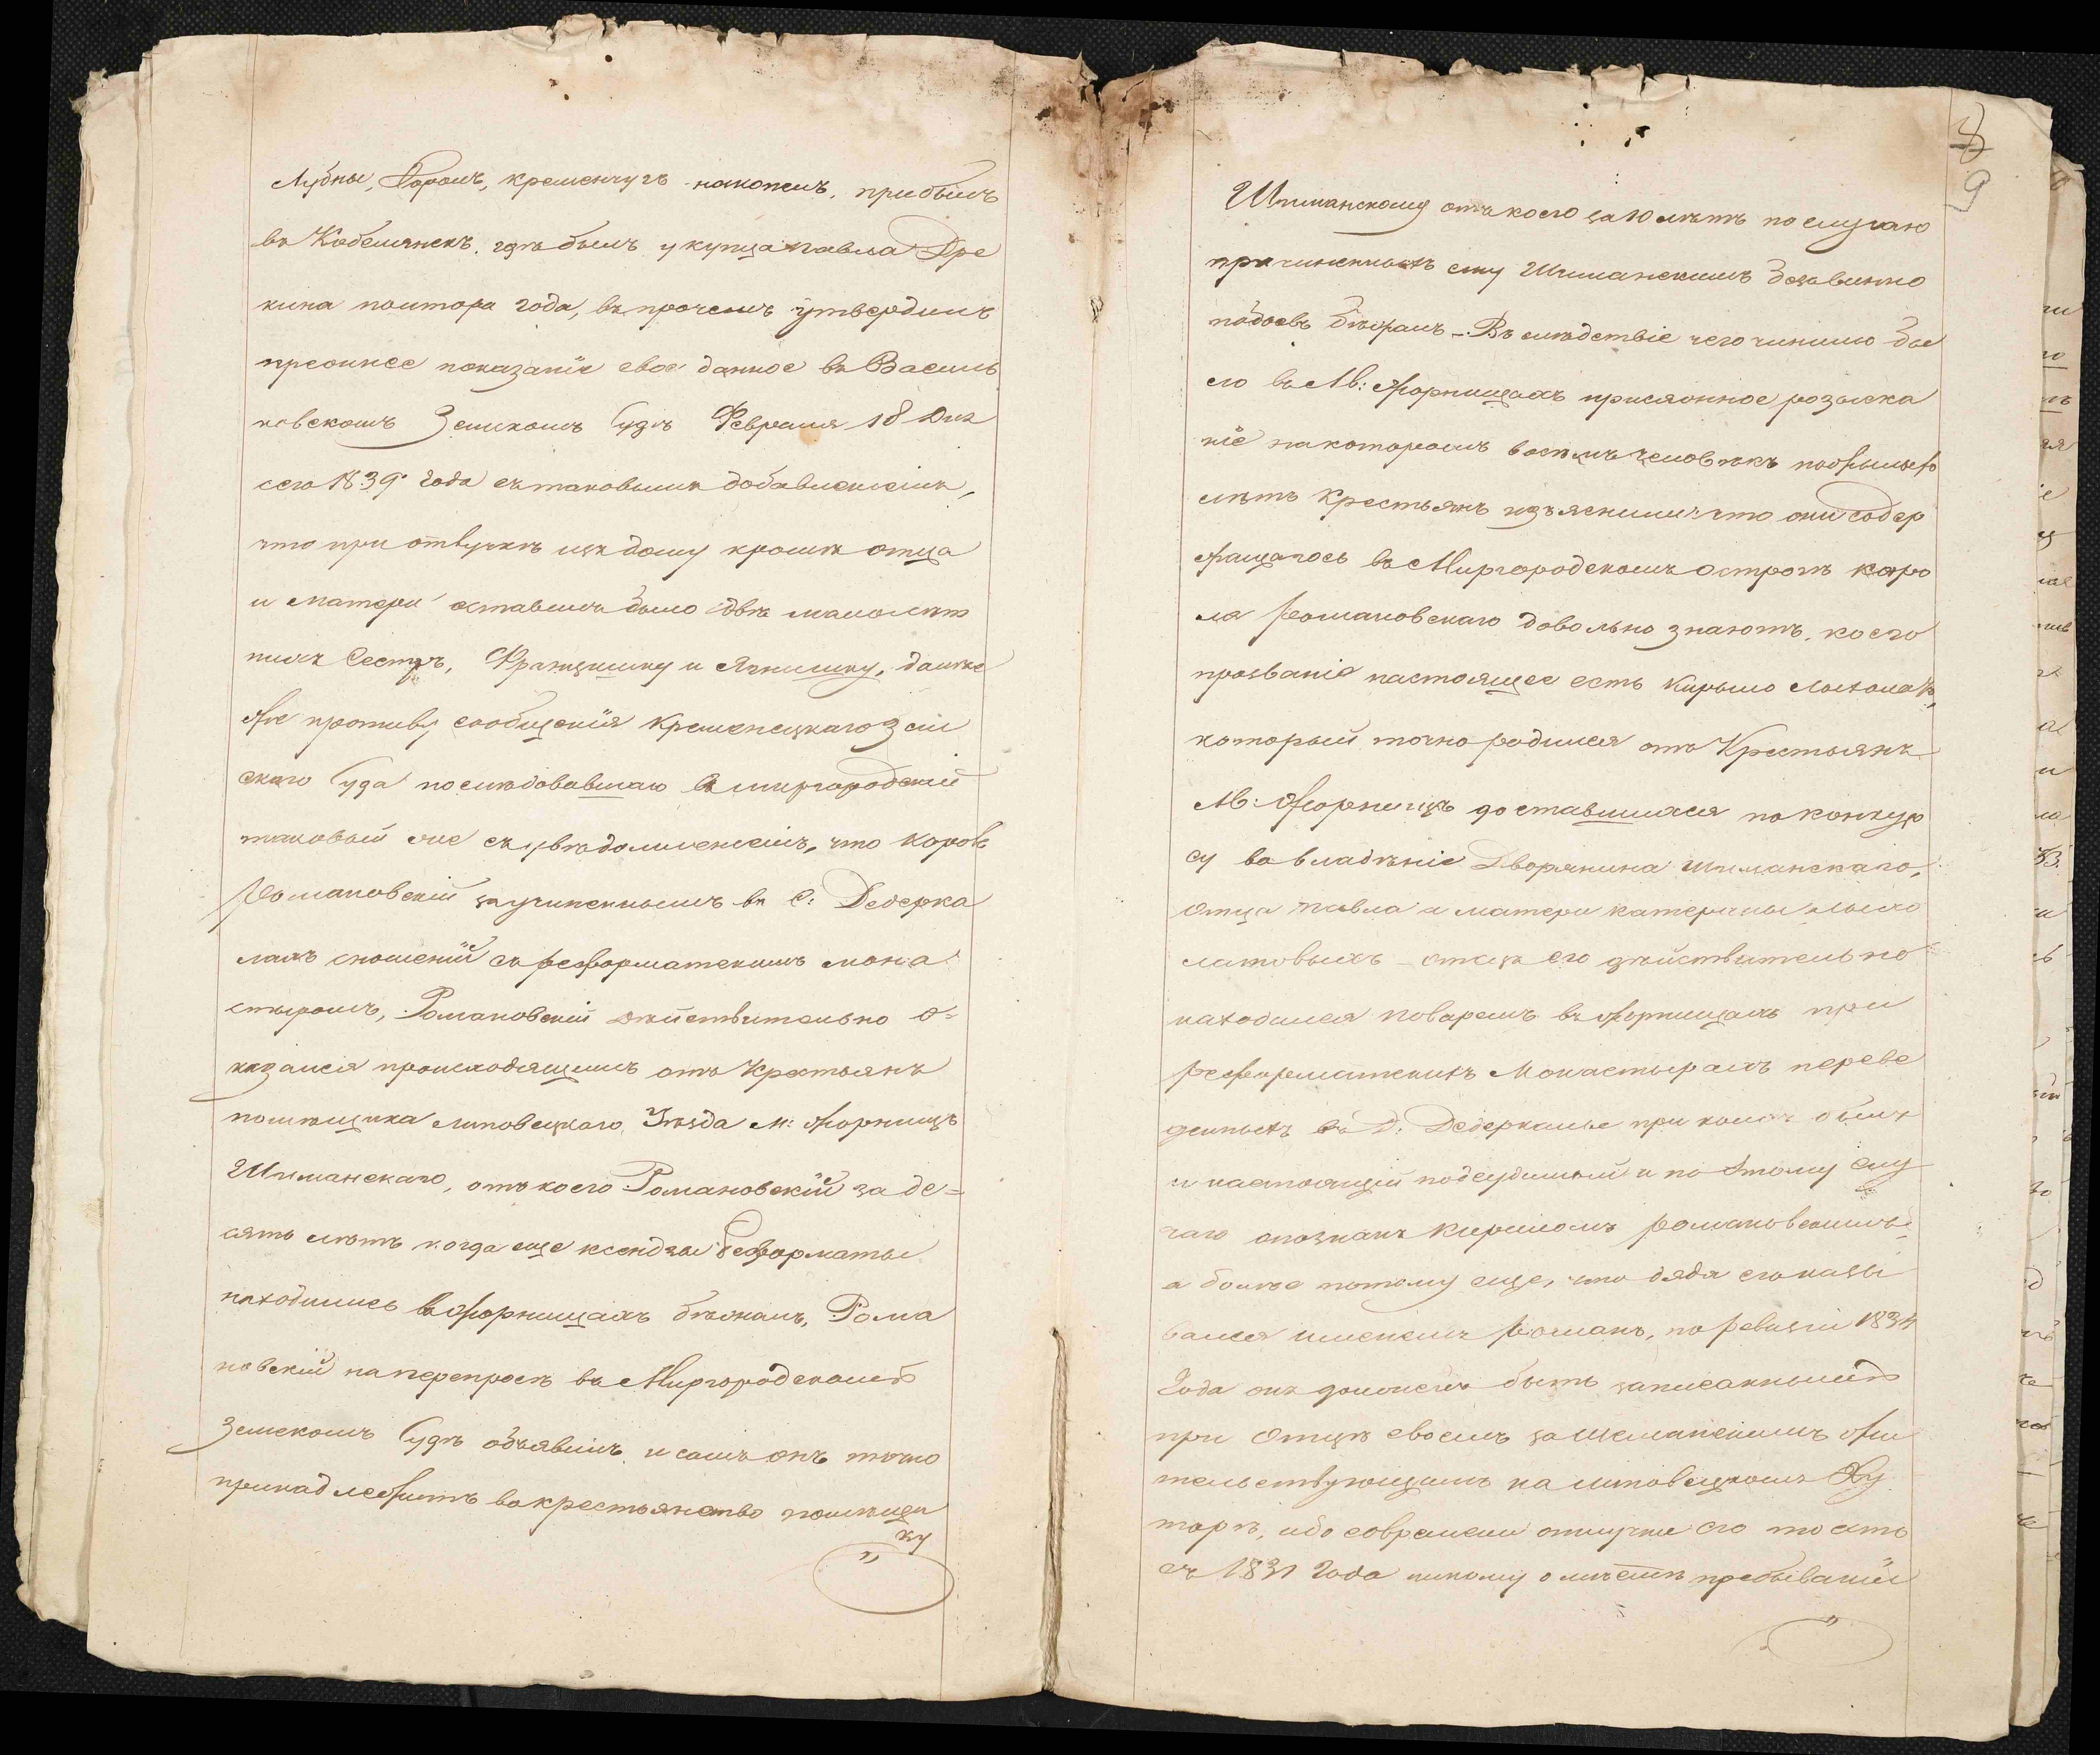 Лубны, Хоролъ, кременчугъ наконецъ, прибылъ
въ Кобелянскъ. гдѣ былъ у купца павла Дре
кина полтора года, впрочемъ утвердилъ
прежнее показаніе свое данное въ Василь
ковскомъ Земскомъ Судѣ Февраля 18 дня
сего 1839 года съ таковымъ добавленіемъ,
что при отлучкѣ изъ дому кромѣ отца
и матери оставилъ было двѣ малолѣт
нихъ Сестръ, Францишку и Ягнишку, далѣе
же противу сообщенія Кременецкаго зем
скаго Суда послѣдовавшаго въ миргородскій
таковый же съ увѣдомленіемъ, что Кароль
Романовскій по учиненнымъ въ С: Дедерка
лахъ сношеній съ реформатскимъ мона
стыромъ, Романовскій дѣйствительно о=
казался происходящимъ отъ Крестьянъ
помѣщика липовецкаго Уѣзда м: Жорнищъ
Шиманскаго, отъ коего Романовскій за де=
сять лѣтъ когда еще ксендзы Реформаты
находились въ Жорнищахъ бѣжалъ, Рома
новскій на перепросѣ въ Миргородскомъ
земскомъ Судѣ объявилъ и самъ онъ точно
принадлежитъ въ крестьянство помѣщи
ку
8
9
Шиманскому отъ коего за 10 лѣтъ по случаю
причиненныхъ ему Шиманскимъ безвинно
побоевъ бѣжалъ – Въ слѣдствіе чего чинимо бы
ло въ М: Жорнищахъ присяжное розыска
ніе на которомъ восемь человѣкъ
лѣтъ Крестьянъ изъяснили что они содер
жащагось въ Миргородскомъ острогѣ каро
ля Романовскаго довольно знаютъ, коего
прозваніе настоящее есть Кирыло
который точно родился отъ Крестьянъ
М: Жорнищъ доставшихся по конкур
су во владѣніе Дворянина Шиманскаго,
отца павла и матери катерины
отецъ его дѣйствительно
находился поваремъ въ Жорнищахъ при
реформатскихъ Монастырахъ переве
денныхъ въ С: Дедеркалы при коихъ былъ
и настоящій подсудимый и по этому слу
чаю опознанъ Кириломъ Романовскимъ
а болѣе потому еще, что дядя его назы
вался именемъ Романъ, по ревизіи 1834
Года онъ долженъ быть записаннымъ
при Отцѣ своемъ за Шиманскимъ жи
тельствующимъ на липовецкомъ Ху
торѣ, ибо со времени отлучки его то есть
съ 1831 года никому о мѣстѣ пребываніи